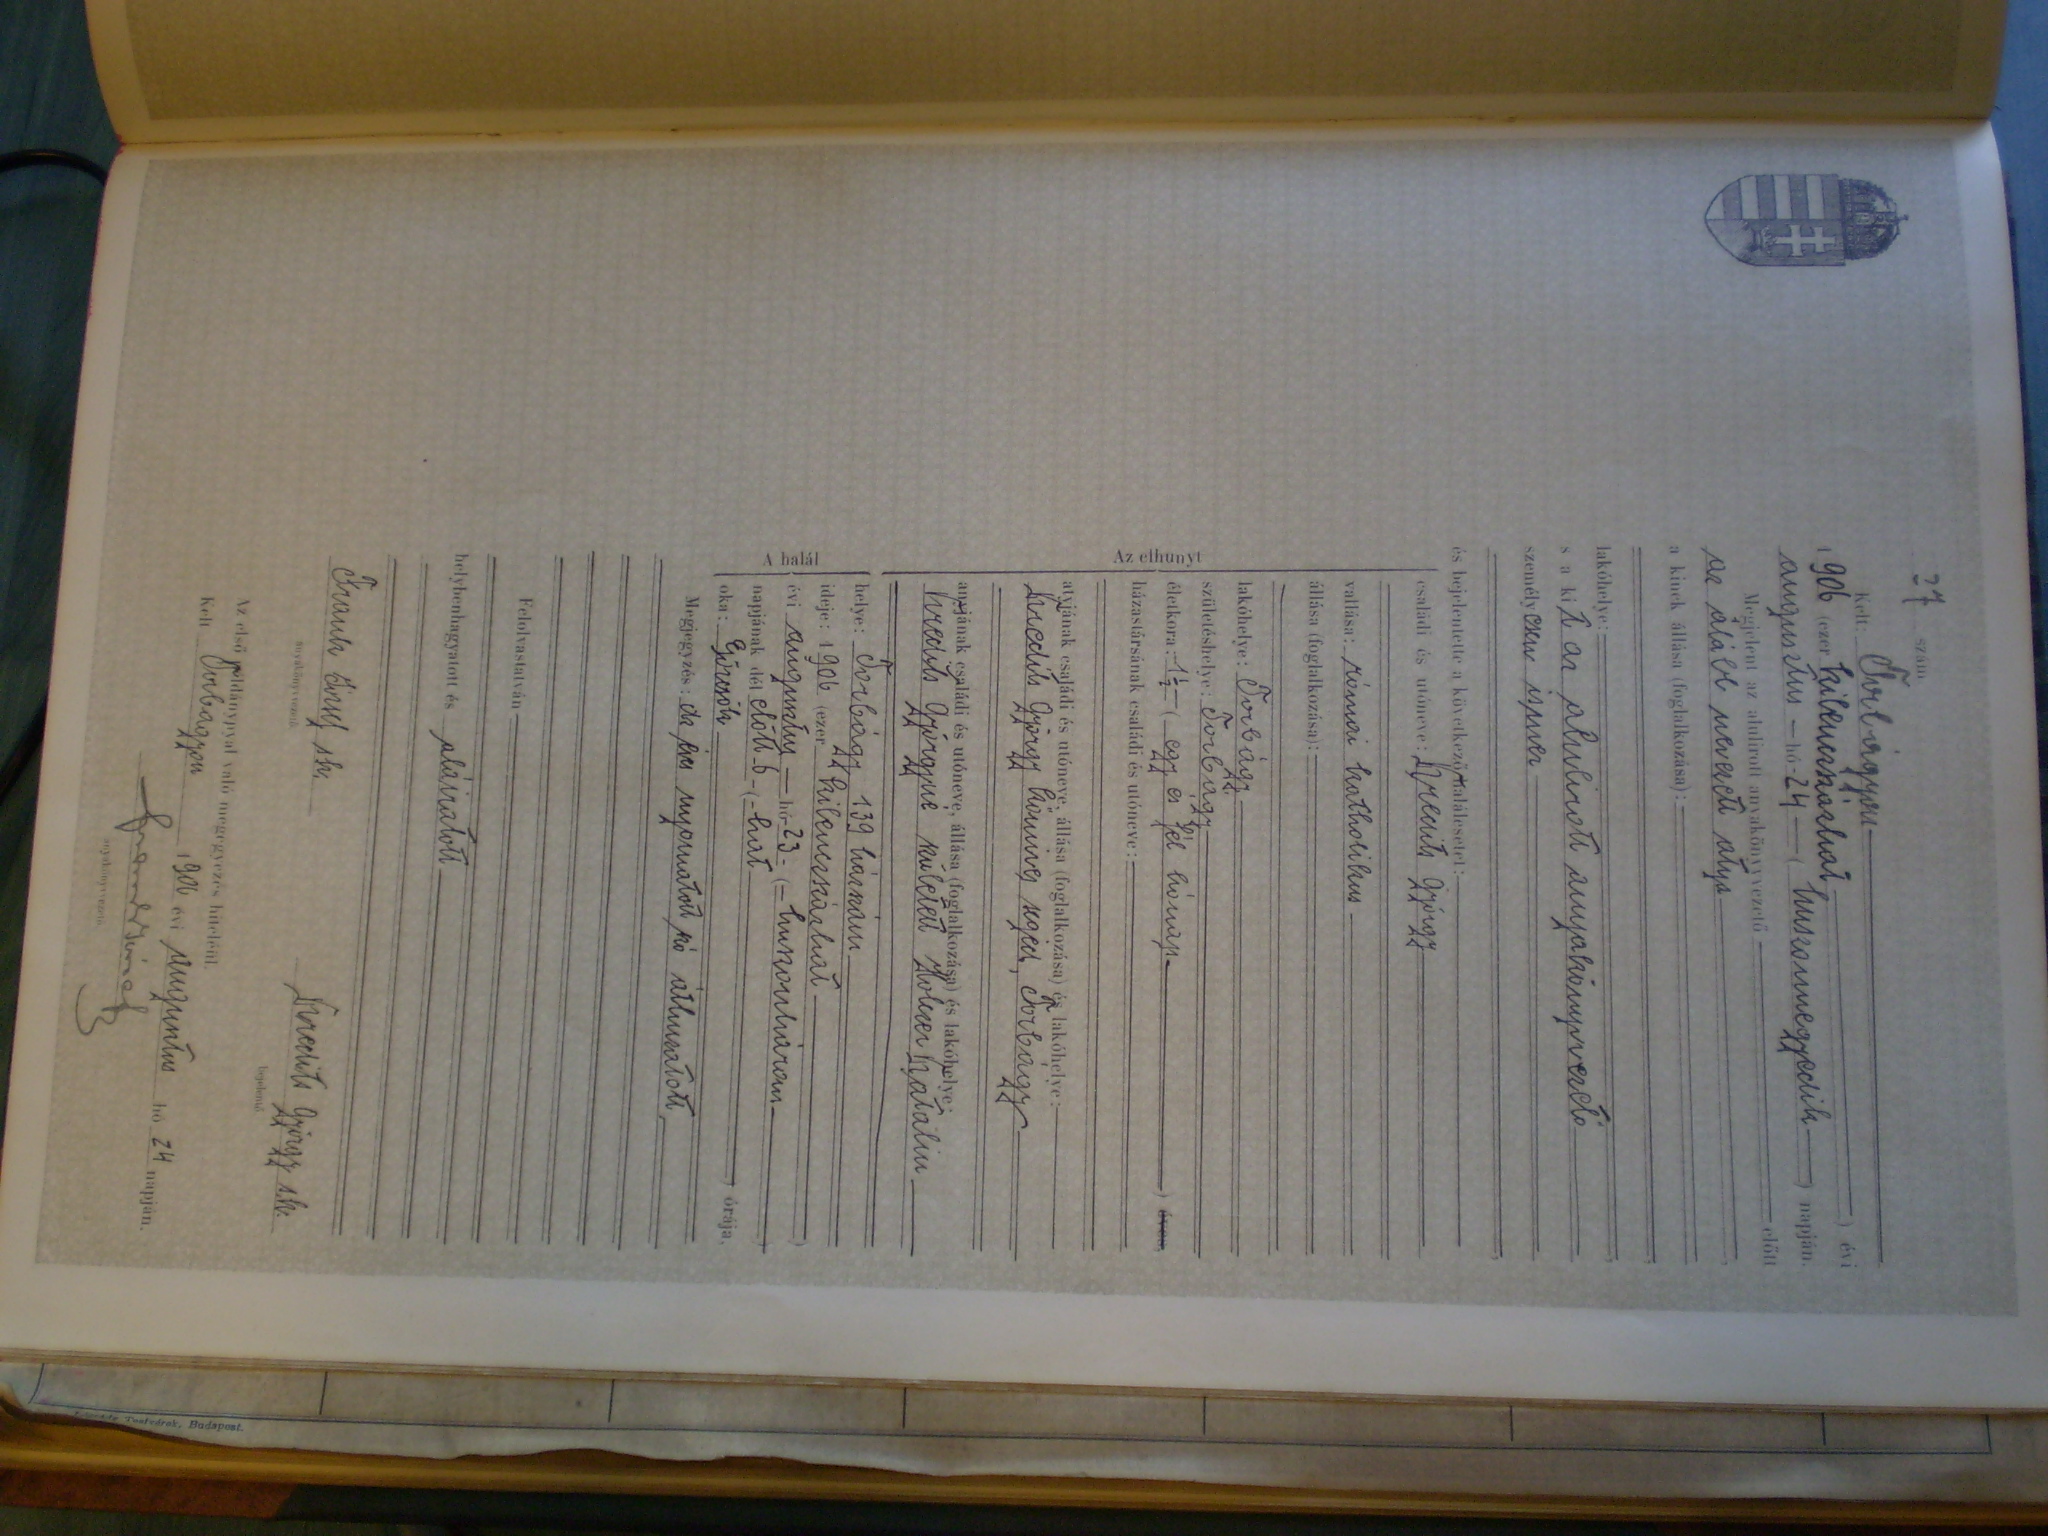 27 szám
Kelt: Torbágyon
1906 (ezer kilencszázhat) évi
augusztus hó 24 (huszonnegyedik) napján.
Megjelent az alulirott anyakönyvezető előtt
az alább nevezett atya
a kinek állása (foglalkozása):
lakóhelye:
s a kit az alulirott anyakönyvvezető
személyesen ismer
és bejelentette a következő halálesetet:
Az elhunyt
családi és utóneve: Kreedits György
vallása: római katholikus
állása (foglalkozása):
lakóhelye: Torbágy
születéshelye: Torbágy
életkora: 1½ (egy és fél hónap) éves.
házastársának családi és utóneve:
atyjának családi és utóneve, állása (foglalkozása) és lakóhelye:
Kreedits György kőmíves segéd, Torbágy
anyjának családi és utóneve, állása (foglalkozása) és lakóhelye:
Kreedits Györgyné született Katalin
A halál
helye: Torbágy 139 házszám
ideje: 1906 (ezer kilencszázhat)
évi augusztus hó 23 (huszonhárom)
napjának dél előtt 6 (hat) órája,
oka: Görcsök
Megjegyzés: da éves nyomatott szó áthuzatott,
Felolvastatván
helybenhagyatott és aláiratott
Frank József sk. Kreedits György s.k.
anyakönyvvezető bejelentő
Az első példánnyal való megegyezés hiteléül.
Kelt Torbágyon 1906 évi augusztus hó 24 napján.
anyakönyvvezető
Testvérek, Budapest.